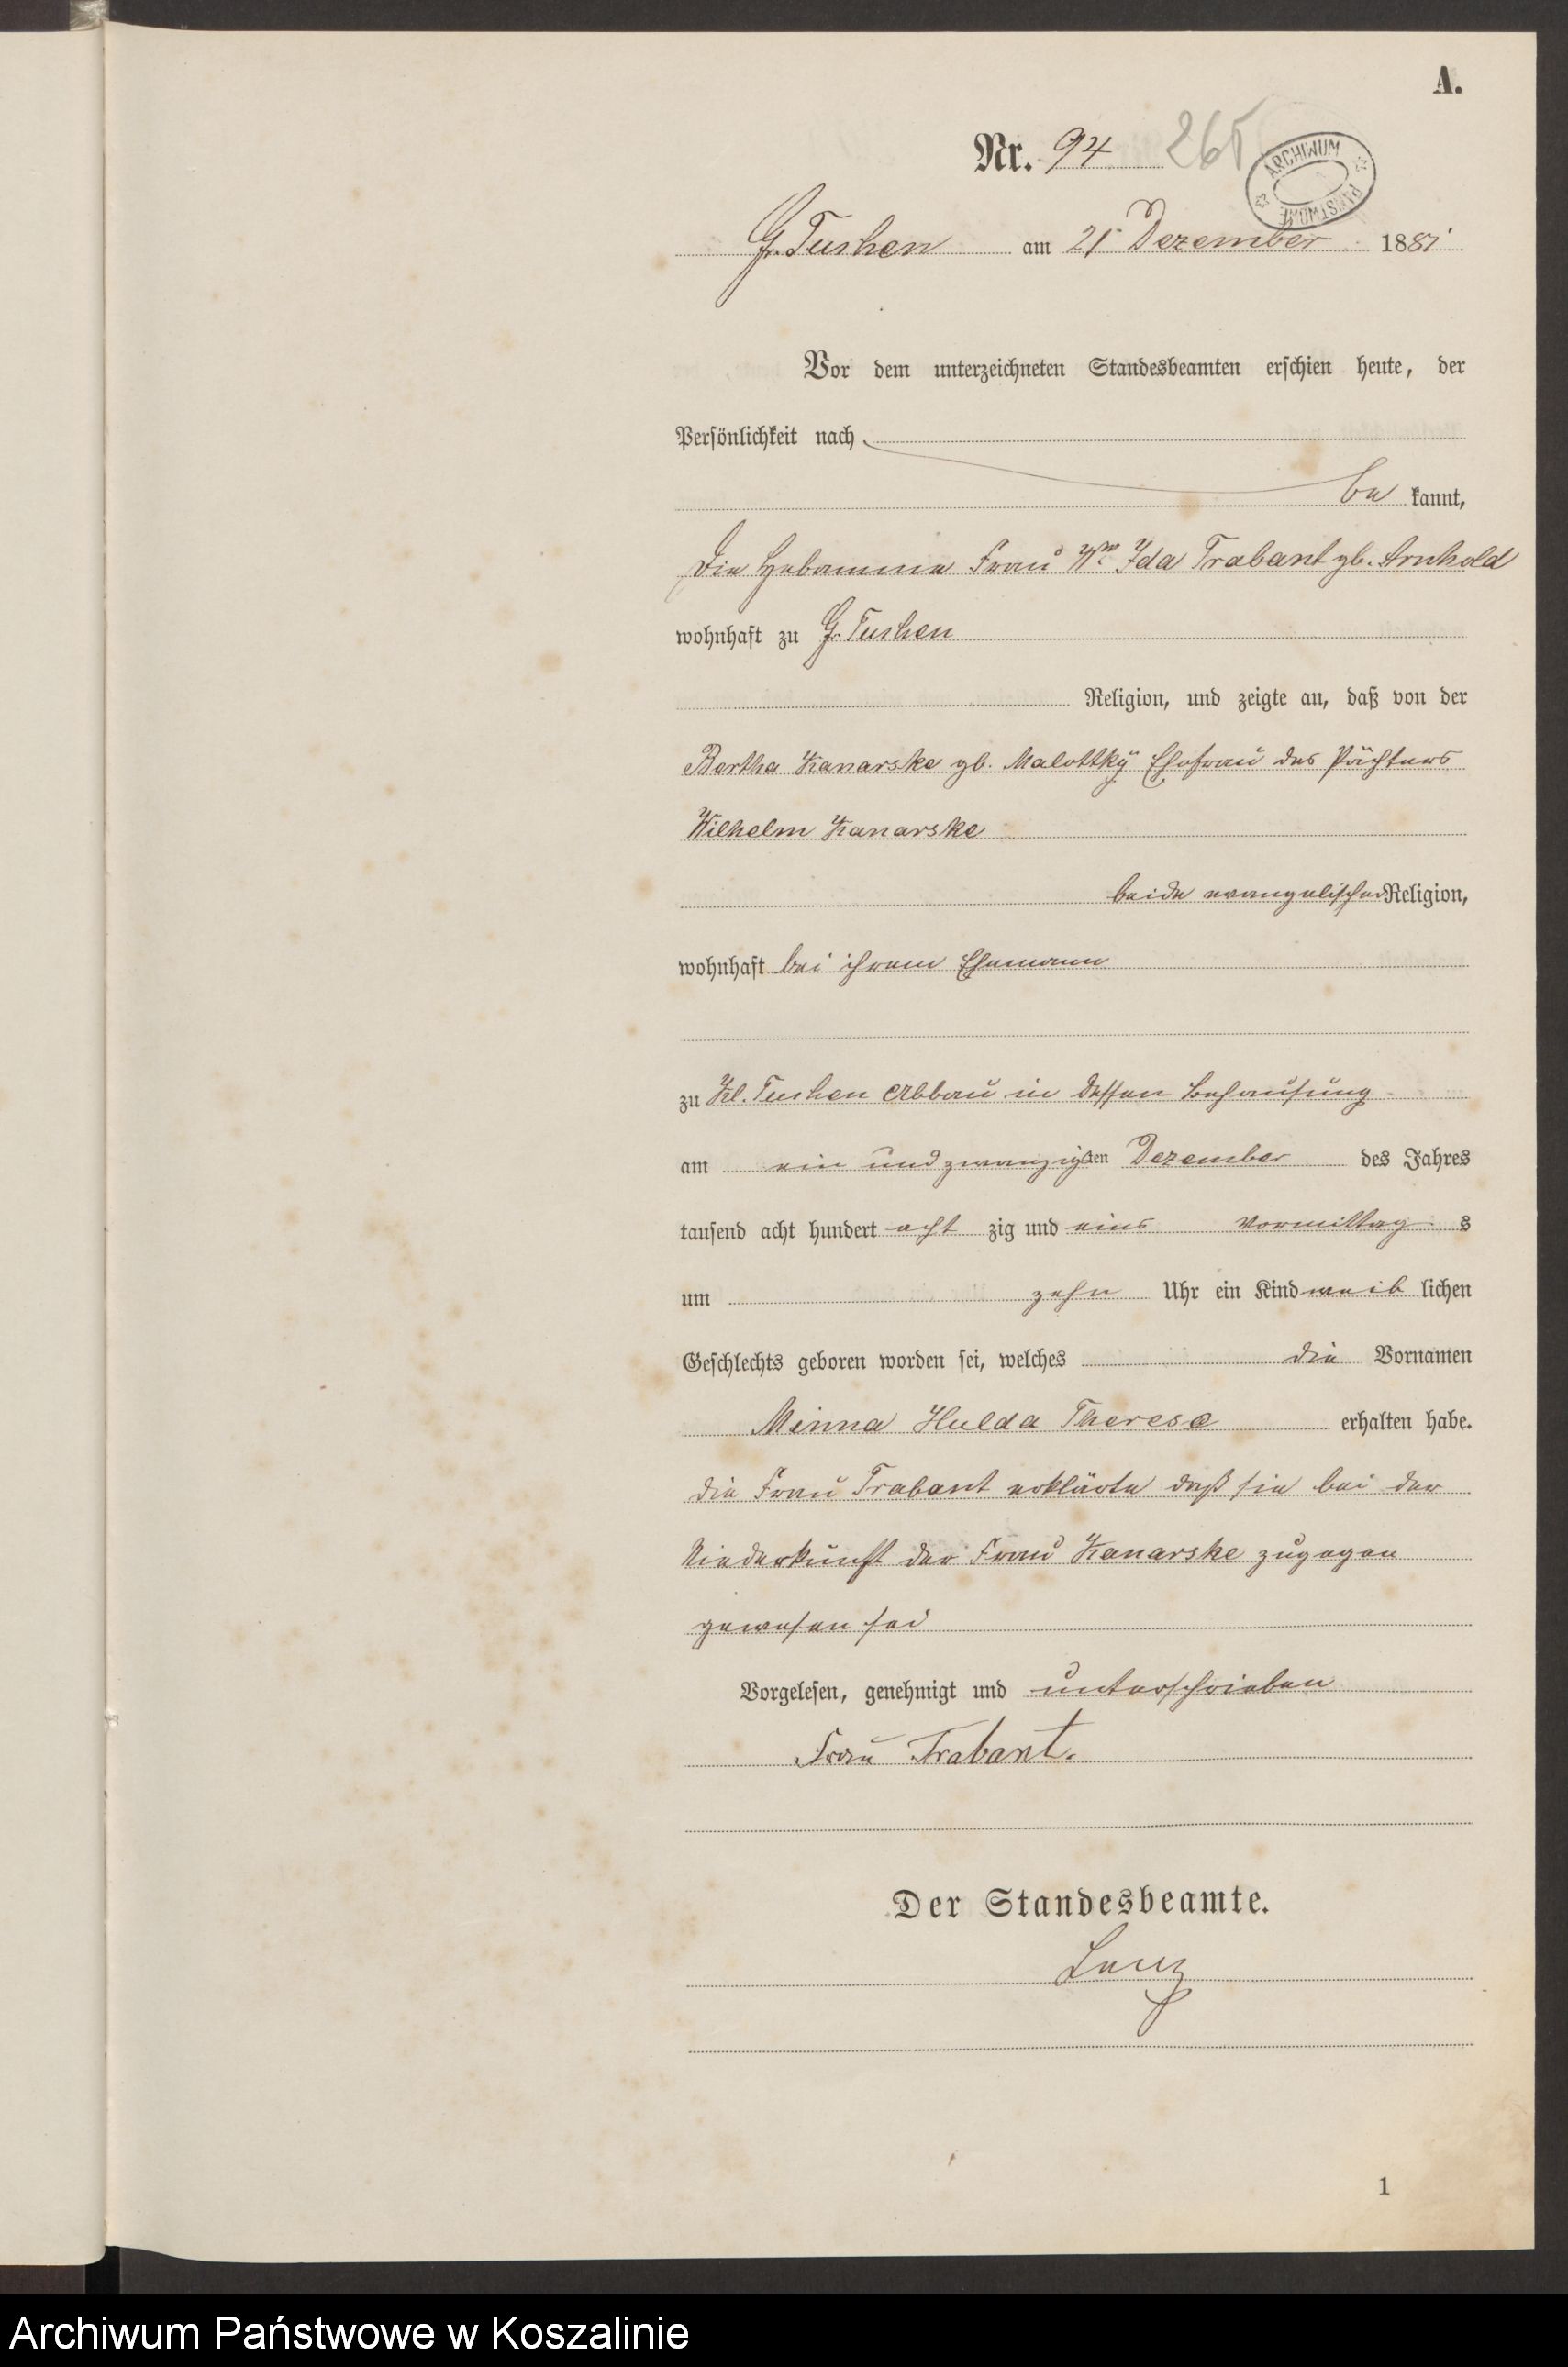 A.
Nr. 94 265
ARCHIWUM PAŃSTWOWE
Gr. Tuchen am 21 Dezember 1881
Vor dem unterzeichneten Standesbeamten erschien heute, der
Persönlichkeit nach
be kannt,
die Hebamme Frau Ww. Ida Trabant gb. Arnhold
wohnhaft zu Gr. Tuchen
Religion, und zeigte an, daß von der
Bertha Kanarske gb. Malottky Ehefrau des Pächters
Wilhelm Kanarske
beide evangelischer Religion,
wohnhaft bei ihrem Ehemann
zu Kl. Tuchen Abbau in dessen Behausung
am ein und zwanzigsten Dezember des Jahres
tausend acht hundert acht zig und eins Vormittag s
um zehn Uhr ein Kind weib lichen
Geschlechts geboren worden sei, welches die Vornamen
Minna Hulda Therese erhalten habe.
die Frau Trabant erklärte daß sie bei der
Niederkunft der Frau Kanarske zugegen
gewesen sei
Vorgelesen, genehmigt und unterschrieben
Frau Trabant.
Der Standesbeamte.
Lenz
1
Archiwum Państwowe w Koszalinie